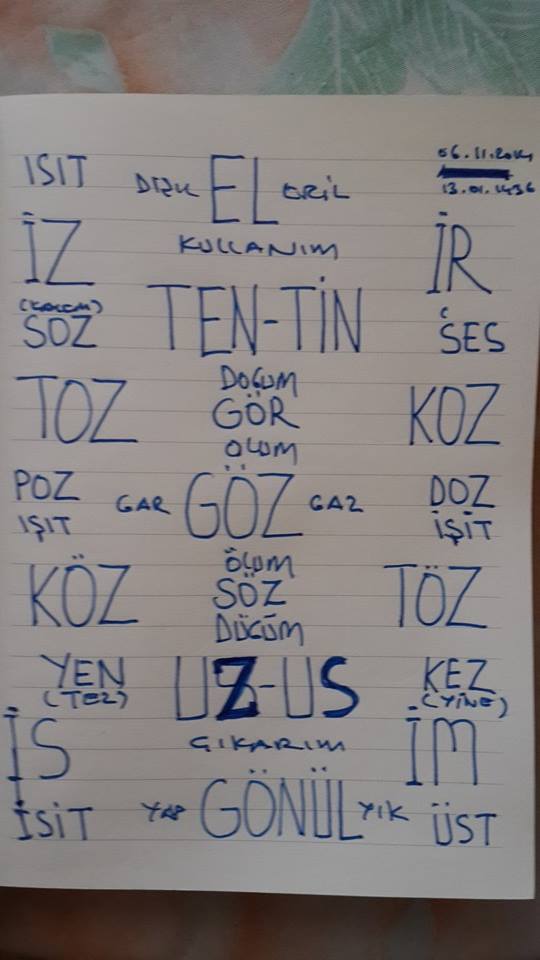 ISIT EL ERİL 06.11.2014
13.01.1436
İZ KULLANIM İR
(KALEM)
SÖZ TEN-TİN SES
DOĞUM
TOZ GÖR KOZ
OLUM
POZ GAR GÖZ GAZ DOZ
IŞIT İŞİT
ÖLÜM
KÖZ SÖZ TÖZ
DÜĞÜM
YEN UZ-US KEZ
(TEZ) (YİNE)
İS ÇIKARIM İM
İSİT YAP GÖNÜL YIK ÜST